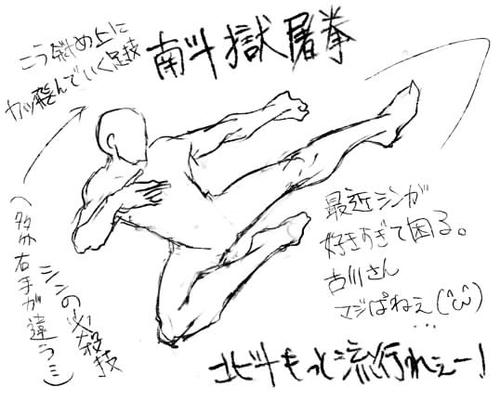 南斗獄屠拳
こう斜め上に
カッ飛んでいく足技
シンの必殺技
（多分右手が違う＝）
最近シンが
好きすぎて困る。
古川さん
マジぱねぇ(^ω^)
…
北斗もっと流行れぇー！